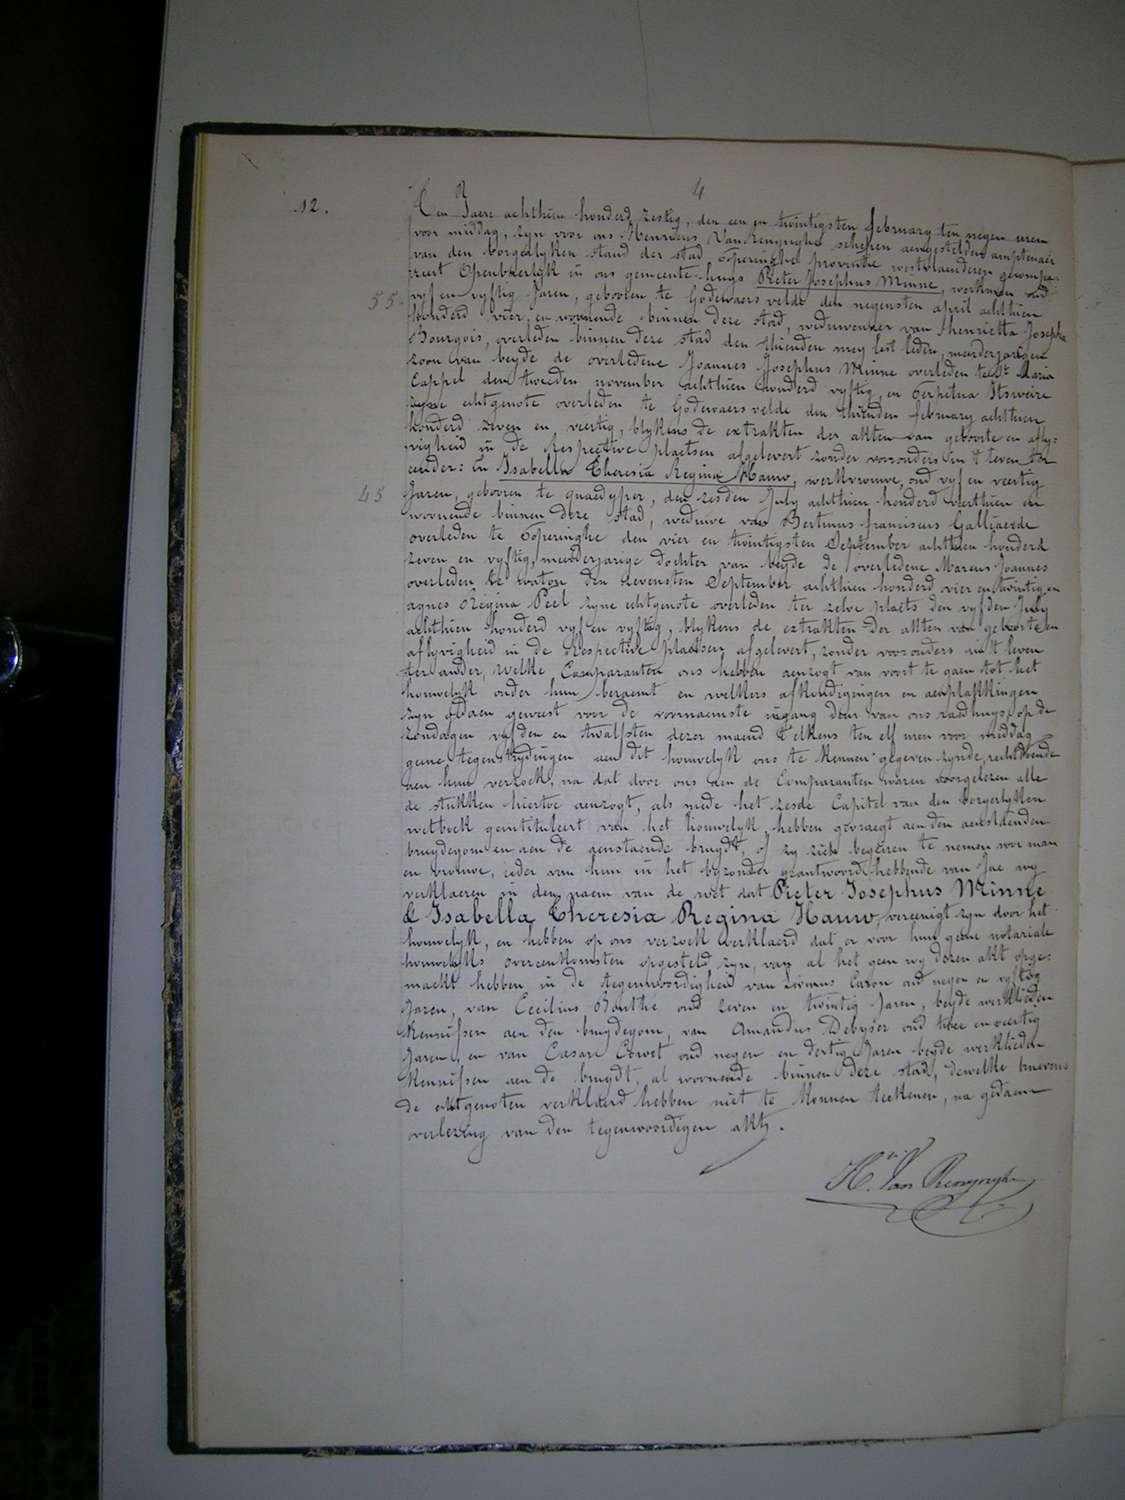 4
12.
Ten Jaere achthien honderd zestig, den een en twintigsten february ten negen uren
voor middag, zyn voor ons Henricus Van Renynghe schepen aengestelden amptenaer
van den borgerlyken stand der stad Poperinghe provintie westvlaenderen gecompa=
reert Openbaerlyk in ons gemeente-huys Pieter Josephus Minne, werkman oud
55. vyf en vyftig Jaren, gebooren te Godewaersvelde den negensten april achthien
honderd vier, en woonende binnen deze stad, weduwenaer van Henrietta Josepha
Bourgois, overleden binnen deze stad den thienden mey lest leden, meerderjarigen
zoon van beyde de overledene Joannes Josephus Minne overleden te St Maria
Cappel den tweeden november achthien honderd vyftig, en Perpetua Itsweire
zyne echtgenote overleden te Godewaersvelde den thienden february achthien
honderd zeven en veertig, blykens de extrakten der akten van geboorte en afly=
vigheid in de respective plaetsen afgelevert zonder voorouders in 't leven ter
eender: en Isabella Theresia Regina Hauw, werkvrouwe, oud vyf en veertig
45 Jaren, gebooren te quaedyper, den zesden July achthien honderd veerthien en
woonende binnen deze stad, weduwe van Bertinus franciscus Gallijaerde
overleden te Poperinghe den vier en twintigsten September achthien honderd
zeven en vyftig, meerderjarige dochter van beyde de overledene Marcus Joannes
overleden te watou den zevensten September achthien honderd vier en twintig en
agnes Regina Peel zyne echtgenote overleden ter zelve plaets den vyfden July
achthien honderd vyf en vyftig, blykens de extrakten der akten van geboorte en
aflyvigheid in de Respective plaetsen afgelevert, zonder voorouders in 't leven
ter ander, welke Comparanten ons hebben aenzogt van voort te gaen tot het
houwelyk onder hun beraemt en welkers afkondigingen en aenplakkingen
zyn gedaen geweest voor de voornaemste ingang deur van ons raedhuys, op de
zondagen vyfden en twalfsten dezer maend telkens ten elf uren voor middag
geene tegenstrydingen aen dit houwelyk ons te kennen gegeven zynde, rechtdoende
aen hun verzoek, na dat door ons aen de Comparanten waren voorgelezen alle
de stukken hiertoe aenzogt, als mede het zesde Capitel van den borgerlyken
wetboek geintituleert van het houwelyk, hebben gevraegt aen den aenstaenden
bruydegom en aen de aenstaende bruydt, of zy zich begeiren te nemen voor man
en vrouwe, ieder van hun in het byzonder geantwoord hebbende van Jae wy
verklaeren in den naem van de wet dat Pieter Josephus Minne
& Isabella Theresia Regina Hauw, vereenigt zyn door het
houwelyk, en hebben op ons verzoek verklaerd dat er voor hun geene notariale
houwelyks overeenkomsten opgesteld zyn, van al het geen wy dezen akt opge=
maekt hebben in de tegenwoordigheid van Livinus Caron oud negen en vyftig
Jaren, van Cecilius Bouthé oud zeven en twintig Jaren, beyde werklieden
kennissen aen den bruydegom, van Amandus Debyser oud twee en veertig
Jaren, en van Cesar Cowet oud negen en dertig Jaren beyde werklieden
kennissen aen de bruydt, al woonende binnen deze stad, dewelke benevens
de echtgenoten verklaerd hebben niet te konnen teekenen, na gedaene
overlezing van den tegenwoordigen akt.
H. Van Renynghe